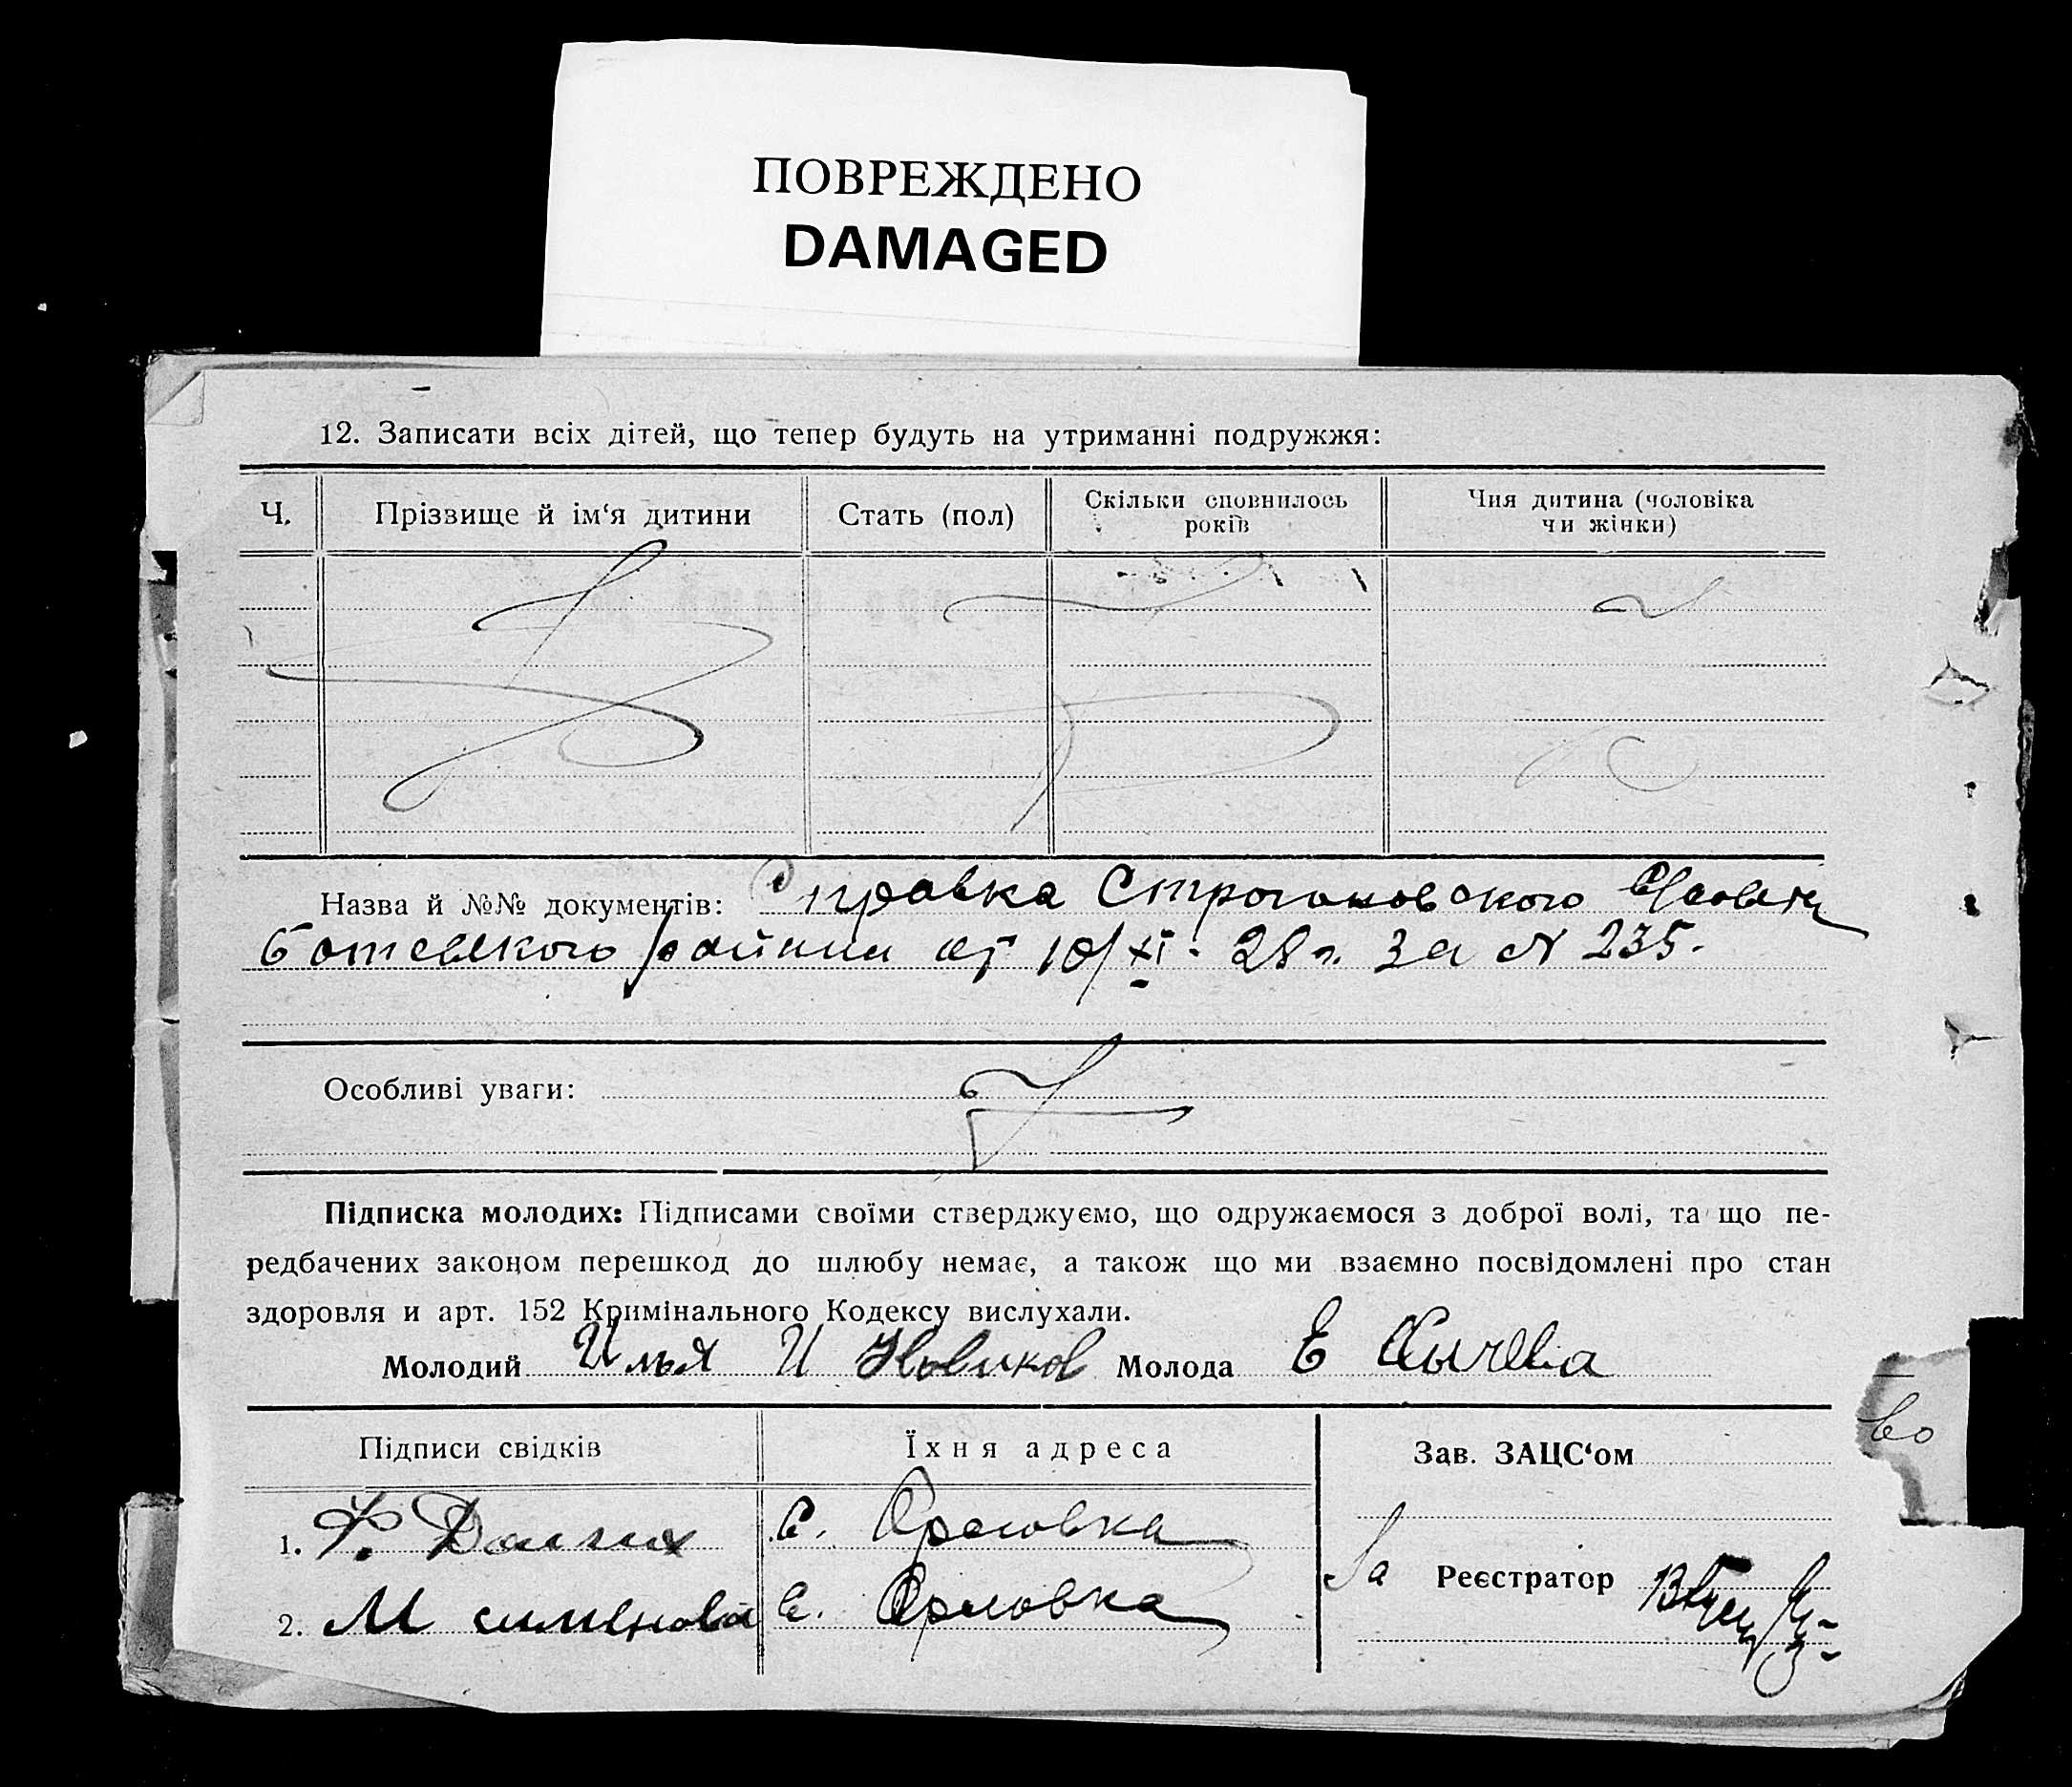 ПОВРЕЖДЕНО
DAMAGED
12. Записати всіх дітей, що тепер будуть на утриманні подружжя:
Ч. Прізвище й ім‘я дитини Стать (пол) Скільки сповнилось років Чия дитина (чоловіка чи жінки)
Назва й №№ документів: Справка Строгоновского
района от 10/XI. 28 г. за N 235.
Особливі уваги:
Підписка молодих: Підписами своїми стверджуємо, що одружаємося з доброї волі, та що пе-
редбачених законом перешкод до шлюбу немає, а також що ми взаємно посвідомлені про стан
здоровля и арт. 152 Кримінального Кодексу вислухали.
Молодий Илья И Новиков Молода Е
Підписи свідків Їхня адреса Зав. ЗАЦС‘ом
во
1. Долгих с. Орловка
За Реєстратор
2. М симėнова с. Орловка